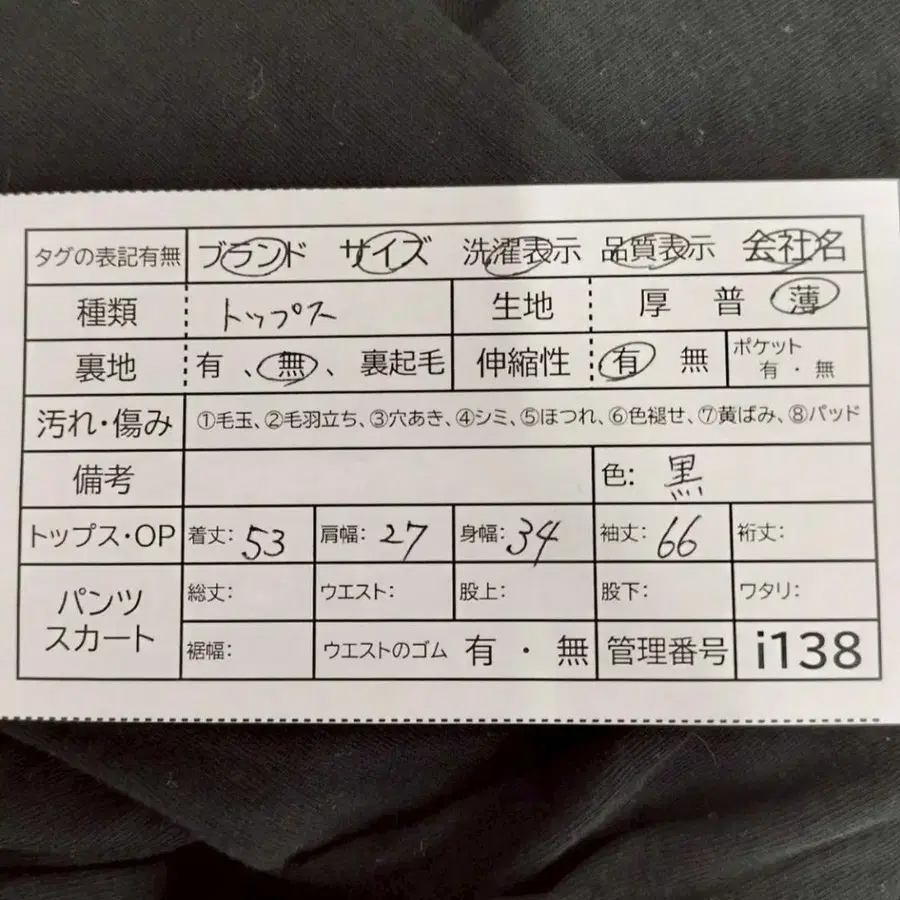 タグの表記有無 ブランド サイズ 洗濯表示 品質表示 会社名
種類 トップス 生地 厚 普 薄
裏地 有、無、裏起毛 伸縮性 有 無 ポケット 有・無
汚れ・傷み ①毛玉、②毛羽立ち、③穴あき、④シミ、⑤ほつれ、⑥色褪せ、⑦黄ばみ、⑧パッド
備考 色: 黒
トップス・OP 着丈: 53 肩幅: 27 身幅: 34 袖丈: 66 裄丈:
パンツ スカート 総丈: ウエスト: 股上: 股下: ワタリ:
裾幅: ウエストのゴム 有・無 管理番号 i138